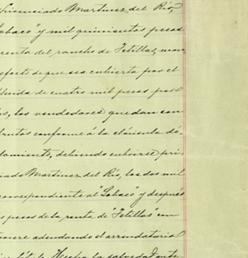 Licenciado Martinez del Rio,
Sabaes" y mil quinientos pesos
renta del rancho de Tetillas, man
efecto de que sea cubierta por el
de cuatro mil pesos
los, los vendedores quedan con
conforme á la cláusula
debiendo cubrirse pri
ciado Martinez del Rio, los dos mil
correspondiente al Sabaes" y despues
pesos de la renta de "Tetillas" con
adeudando el arrendatario
Hecha la salvedad ante